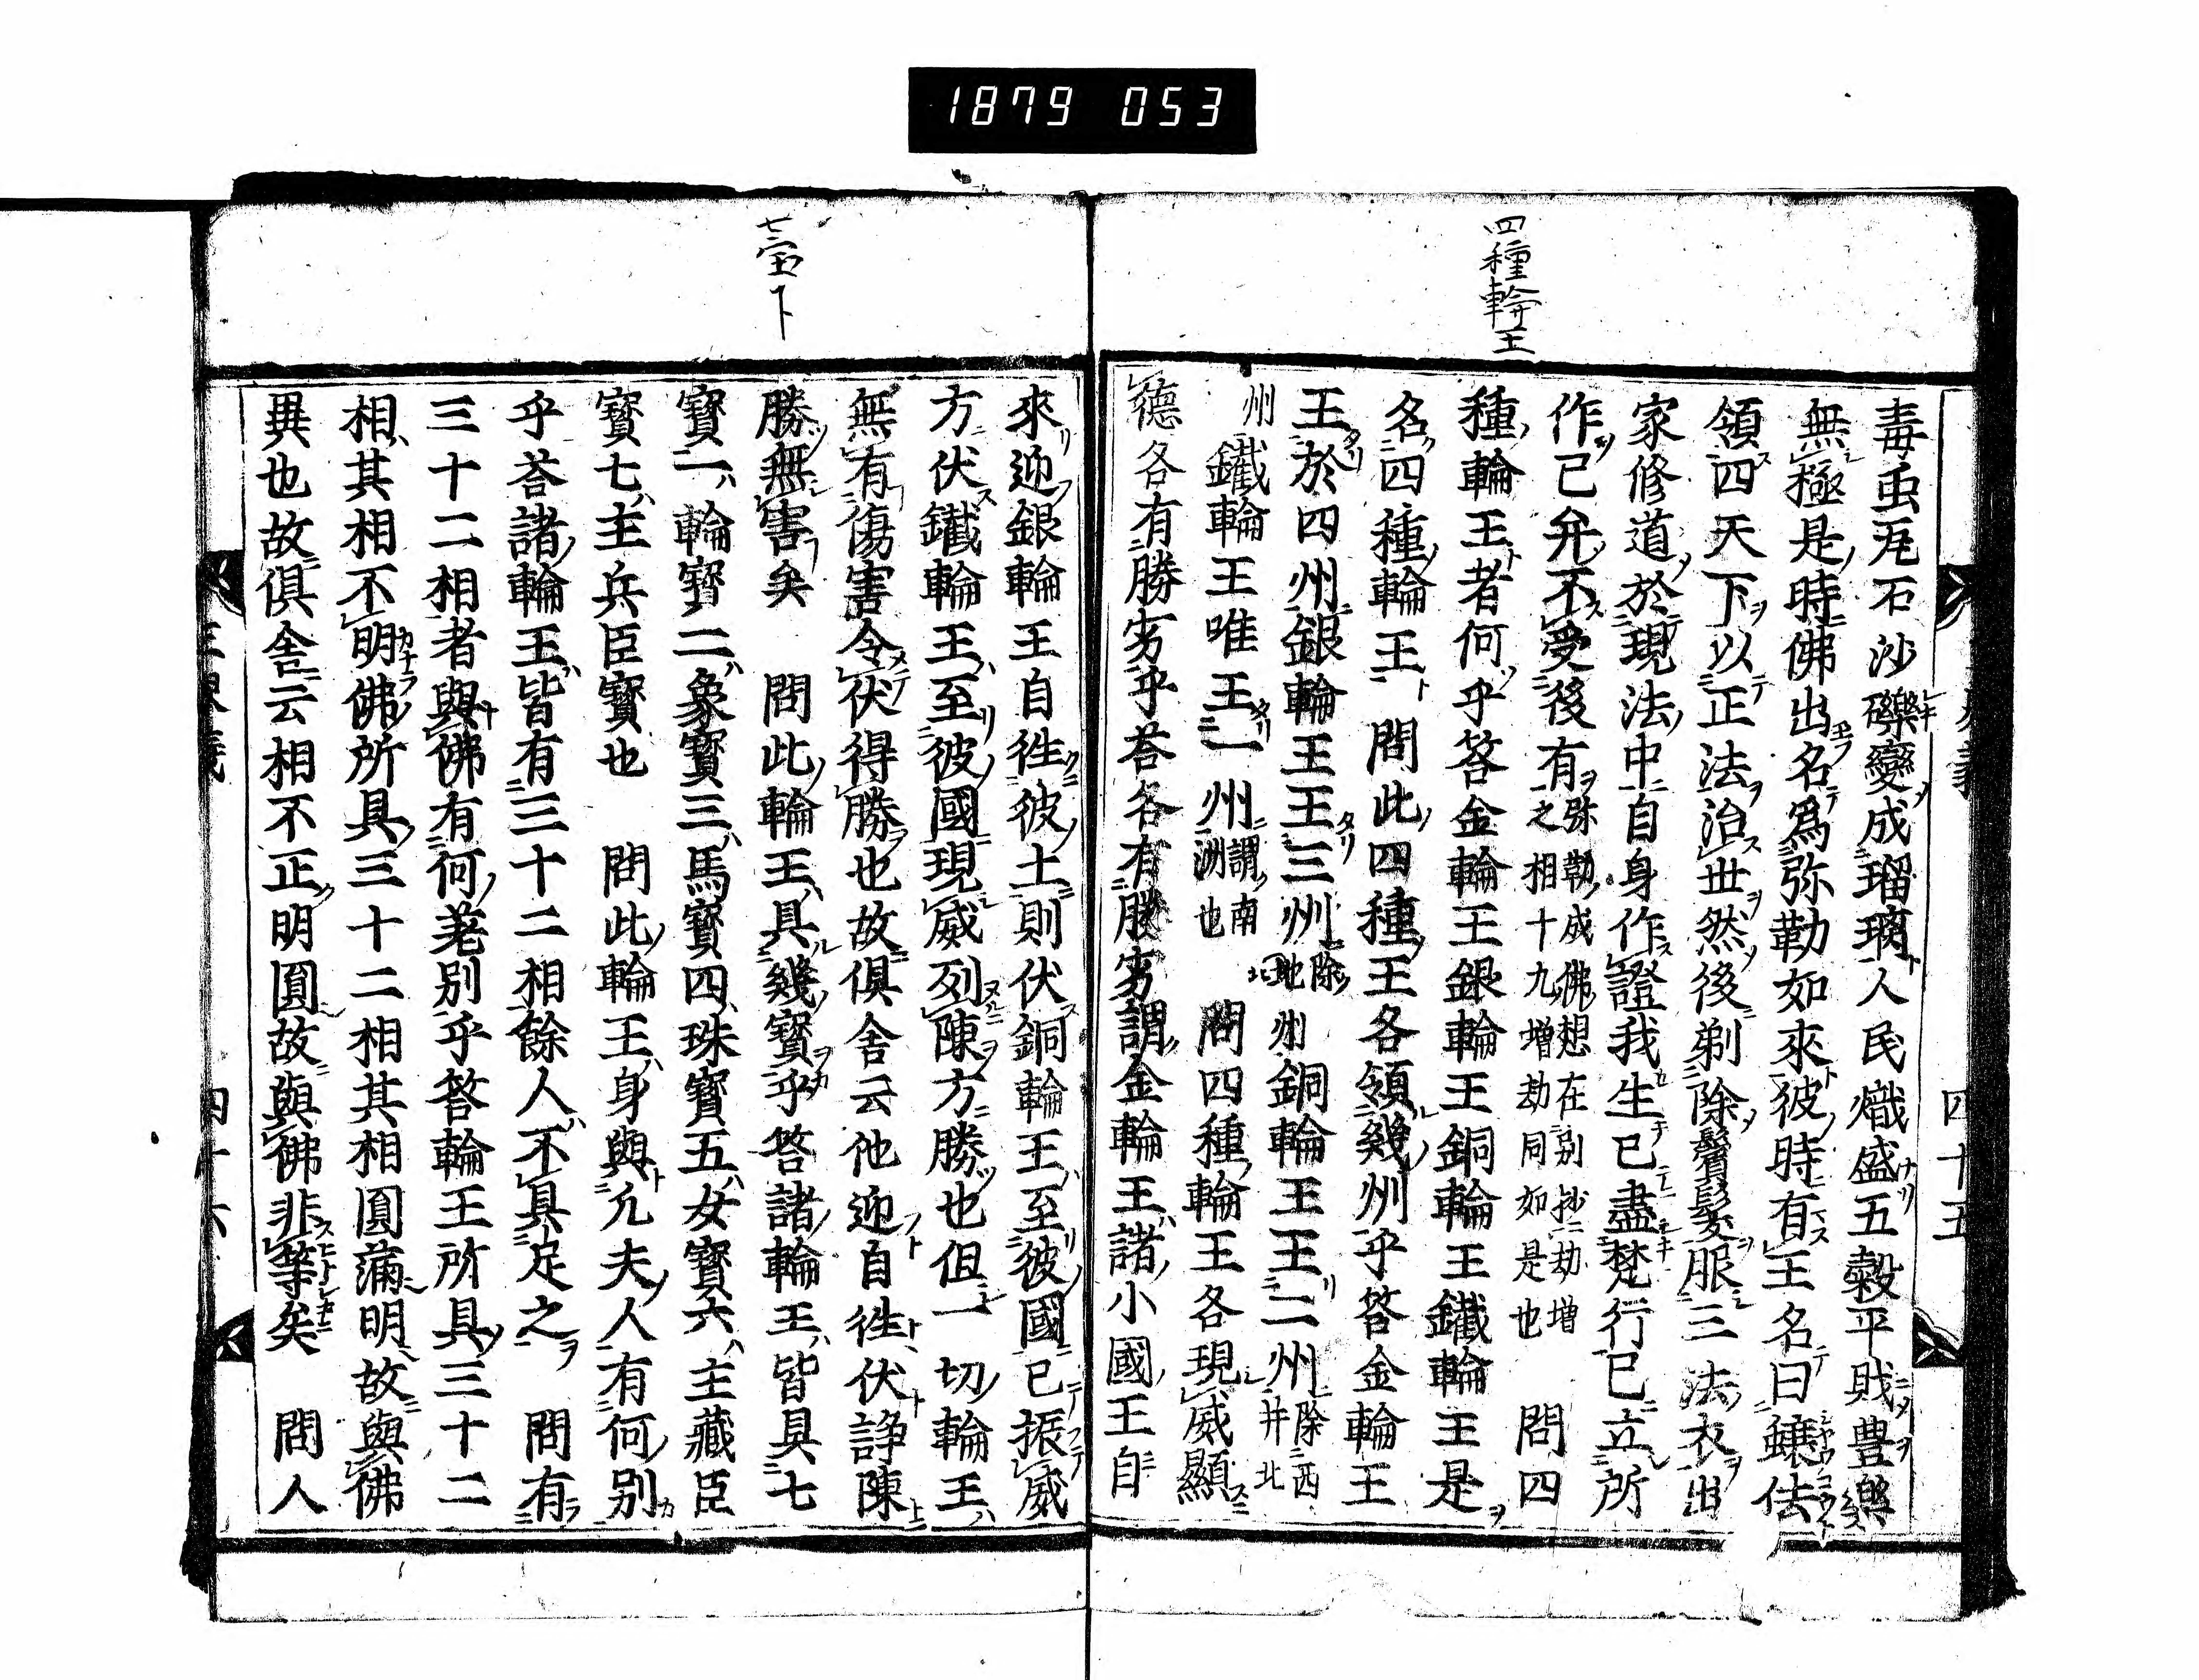 1879 053
四種輪王
四十五
毒虫瓦石沙礫變成瑠璃人民熾盛五穀平賎豊樂
無極是時佛出名爲弥勒如來彼時有王名曰蠰佉
領四天下以正法治世然後剃除鬚髮服三法衣出
家修道於現法中自身作證我生已盡梵行已立所
作已弁不受後有弥勒成佛想在别抄二劫増之相十九増劫同如是也 問四
種輪王者何乎答金輪王銀輪王銅輪王鐵輪王是
名四種輪王 問此四種王各領幾州乎答金輪王
王於四州銀輪王王三州除北地州銅輪王王二州除西井北
州鐵輪王唯王一州謂南洲也 問四種輪王各現威顯
德各有勝劣乎荅各有勝劣謂金輪王諸小國王自
七宝下
來迎銀輪王自徃彼土則伏銅輪王至彼國已振威
方伏鐵輪王至彼國現威列陳方勝也但一切輪王
無有傷害令伏得勝也故倶舎云他迎自徃伏諍陳
勝無害矣 問此輪王具幾寳乎答諸輪王皆具七
寳一輪寳二象寳三馬寳四珠寳五女寳六主藏臣
寳七主兵臣寳也 問此輪王身與凡夫人有何别
乎荅諸輪王皆有三十二相餘人不具足之 問有
三十二相者與佛有何差别乎答輪王所具三十二
相其相不明佛所具三十二相其相圓滿明故與佛
異也故倶舎云相不正明圓故與佛非等矣 問人